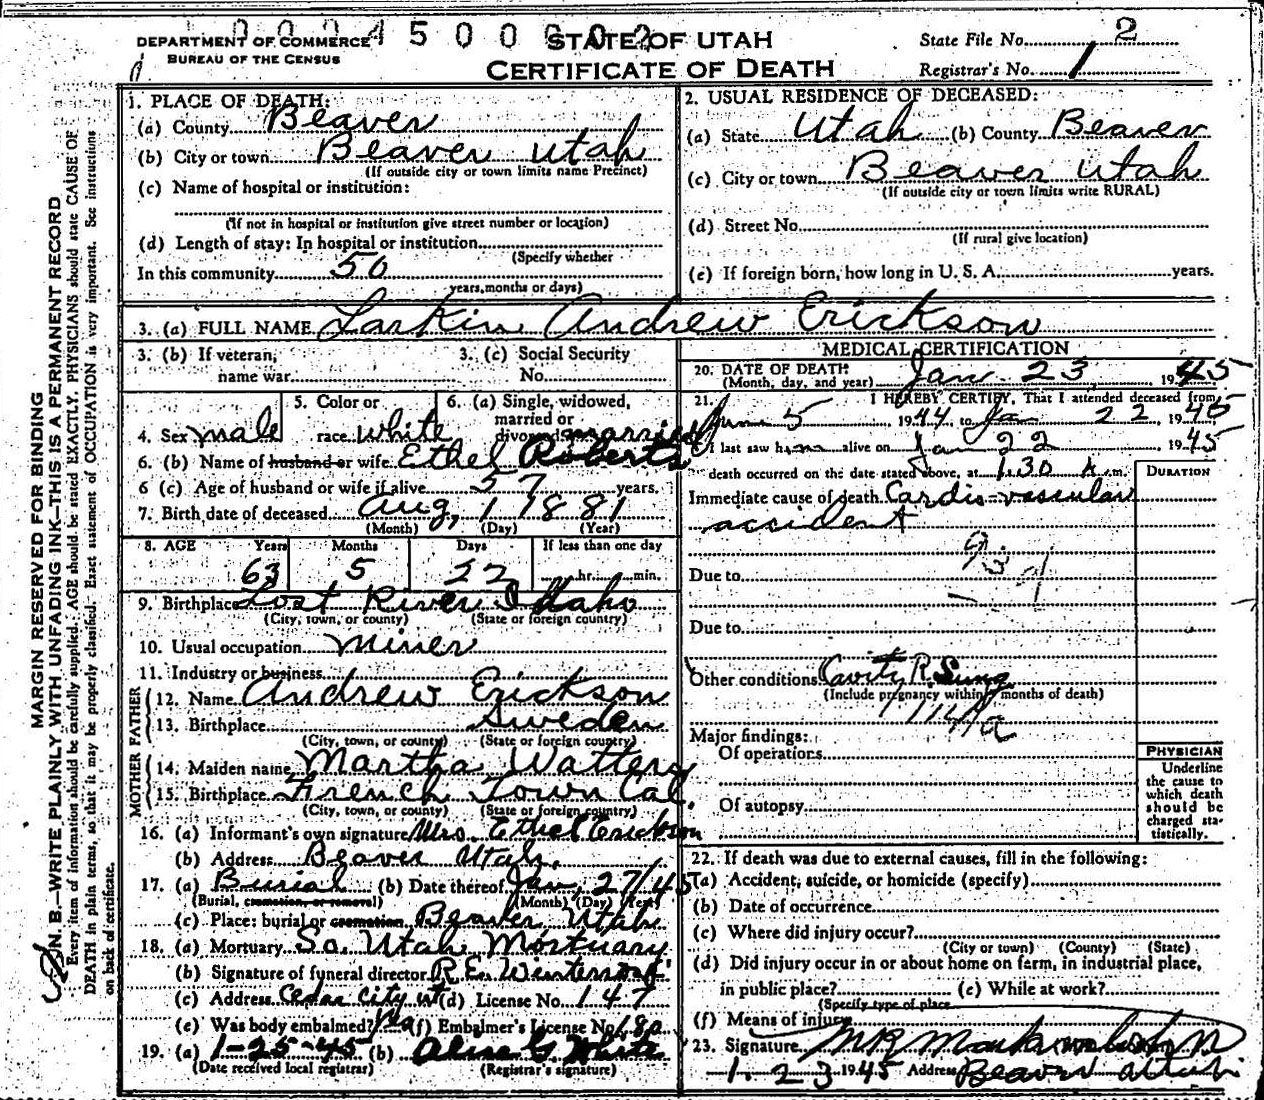 1 0 0 2 4 5 0 0 0 0 2
DEPARTMENT OF COMMERCE
BUREAU OF THE CENSUS
STATE OF UTAH
CERTIFICATE OF DEATH
State File No. 2
Registrar's No. 1
MARGIN RESERVED FOR BINDING
N. B.—WRITE PLAINLY WITH UNFADING INK—THIS IS A PERMANENT RECORD
Every item of information should be carefully supplied. AGE should be stated EXACTLY. PHYSICIANS should state CAUSE OF
DEATH in plain terms, so that it may be properly classified. Exact statement of OCCUPATION is very important. See instructions
on back of certificate.
1. PLACE OF DEATH:
(a) County Beaver
(b) City or town Beaver Utah
(If outside city or town limits name Precinct)
(c) Name of hospital or institution:
(If not in hospital or institution give street number or location)
(d) Length of stay: In hospital or institution
(Specify whether
In this community 50
years, months or days)
2. USUAL RESIDENCE OF DECEASED:
(a) State Utah (b) County Beaver
(c) City or town Beaver Utah
(If outside city or town limits write RURAL)
(d) Street No.
(If rural give location)
(e) If foreign born, how long in U. S. A. years.
3. (a) FULL NAME Larkin Andrew Erickson
3. (b) If veteran, name war
3. (c) Social Security No.
4. Sex male
5. Color or race white
6. (a) Single, widowed, married or divorced married
6. (b) Name of husband or wife Ethel Roberts
6 (c) Age of husband or wife if alive 57 years.
7. Birth date of deceased Aug. 1 1881
(Month) (Day) (Year)
8. AGE Years Months Days If less than one day
63 5 22 hr. min.
9. Birthplace Lost River Idaho
(City, town, or county) (State or foreign country)
10. Usual occupation Miner
11. Industry or business
FATHER
12. Name Andrew Erickson
13. Birthplace Sweden
(City, town, or county) (State or foreign country)
MOTHER
14. Maiden name Martha Watters
15. Birthplace French Town Cal.
(City, town, or county) (State or foreign country)
16. (a) Informant's own signature Mrs. Ethel Erickson
(b) Address Beaver Utah.
17. (a) Burial (b) Date thereof Jan. 27/45
(Burial, cremation, or removal) (Month) (Day) (Year)
(c) Place: burial or cremation Beaver Utah
18. (a) Mortuary So. Utah Mortuary
(b) Signature of funeral director R.E.
(c) Address Cedar City Ut (d) License No. 147
(e) Was body embalmed? (f) Embalmer's License No. 180
19. (a) 1-25-45 (b) Alise G White
(Date received local registrar) (Registrar's signature)
MEDICAL CERTIFICATION
20. DATE OF DEATH
(Month, day, and year) Jan. 23, 1945
21. I HEREBY CERTIFY, That I attended deceased from
June 5 1944, to Jan 22, 1945
I last saw him alive on Jan 22 1945
death occurred on the date stated above, at 1:30 A.m.
DURATION
Immediate cause of death Cardio-vascular
accident
Due to
Due to
Other conditions Cavity R. Lung
(Include pregnancy within months of death)
Major findings:
Of operations
Of autopsy
PHYSICIAN
Underline
the cause to
which death
should be
charged sta-
tistically.
22. If death was due to external causes, fill in the following:
(a) Accident, suicide, or homicide (specify)
(b) Date of occurrence
(c) Where did injury occur?
(City or town) (County) (State)
(d) Did injury occur in or about home on farm, in industrial place,
in public place? (e) While at work?
(Specify type of place
(f) Means of injury
23. Signature
1. 23 1945 Address Beaver Utah